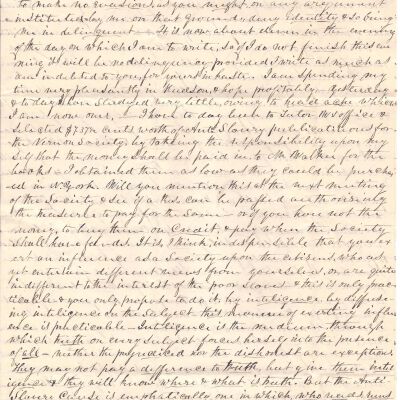 to make no evasions, as you might, on any argument
instituted by me on that ground, deny identity & so bring
me in delinquent — It is now about eleven in the evening
of the day on which I am to write, so if I do not finish this eve
ning it will be no delinquency provided I write as much as I
am indebted to you, for yours in haste. I am spending my
time very pleasantly in Hudson, & hope profitably. Yesterday
& to day I have studied very little, owing to head ache which
I am now over, I have to day been to office &
selected $7.37½ cents worth of Anti Slavery publications for
the Vernon Society, by taking the responsibility upon my
self that the money shall be paid in to Mr Walker for the
books & I obtained them as low as they could be purchas
ed in N. York. Will you mention this at the next meeting
of the Society & see if a tax can be passed authorising
the treasurer to pay for the same — or if you have not the
money, to buy them on Credit, & pay when the Society
shall have funds. It is, I think, indispensible that you ex
ert an influence as a Society upon the citizens, who as
yet entertain different views from yourselves, or are quite
indifferent to the interest of the poor slaves & this is only prac
ticable & you only propose to do it, by inteligence by diffus
ing inteligence on the subject this manner of exerting influ
ence is practicable — Inteligence is the medium through
which truth on every subject forces herself into the presence
of all — neither the prejudiced nor the dishonest are exceptions
They may not pay a difference to truth, but give them intel
igence & they will know where & what is truth. But the Anti-
Slavery Cause is emphatically one in which, who needs runs